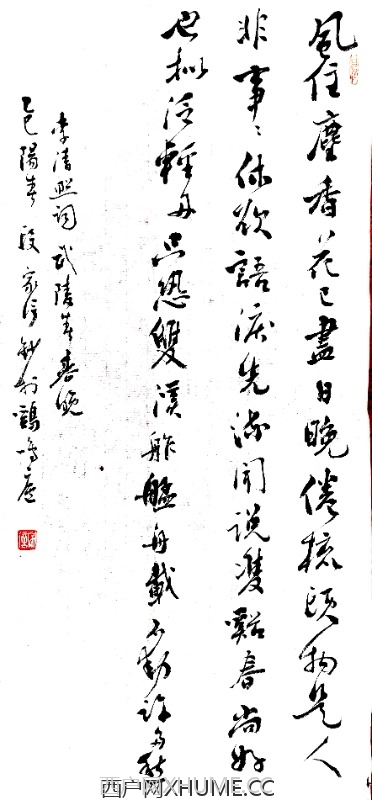 風住塵香花已盡日晚倦梳頭物是人
非事〻休欲語淚先流聞說雙谿春尚好
也擬泛輕舟只恐雙溪舴艋舟載不動許多愁
李清照詞武陵春春晚
乙巳陽春段家鶴鳴廬
西户网XHUME.CC